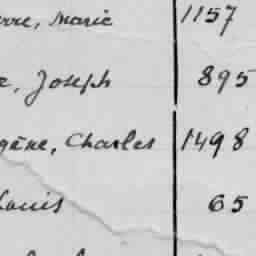 erre, Marie 1157
e, Joseph 895
gène, Charles 1498
Louis 65